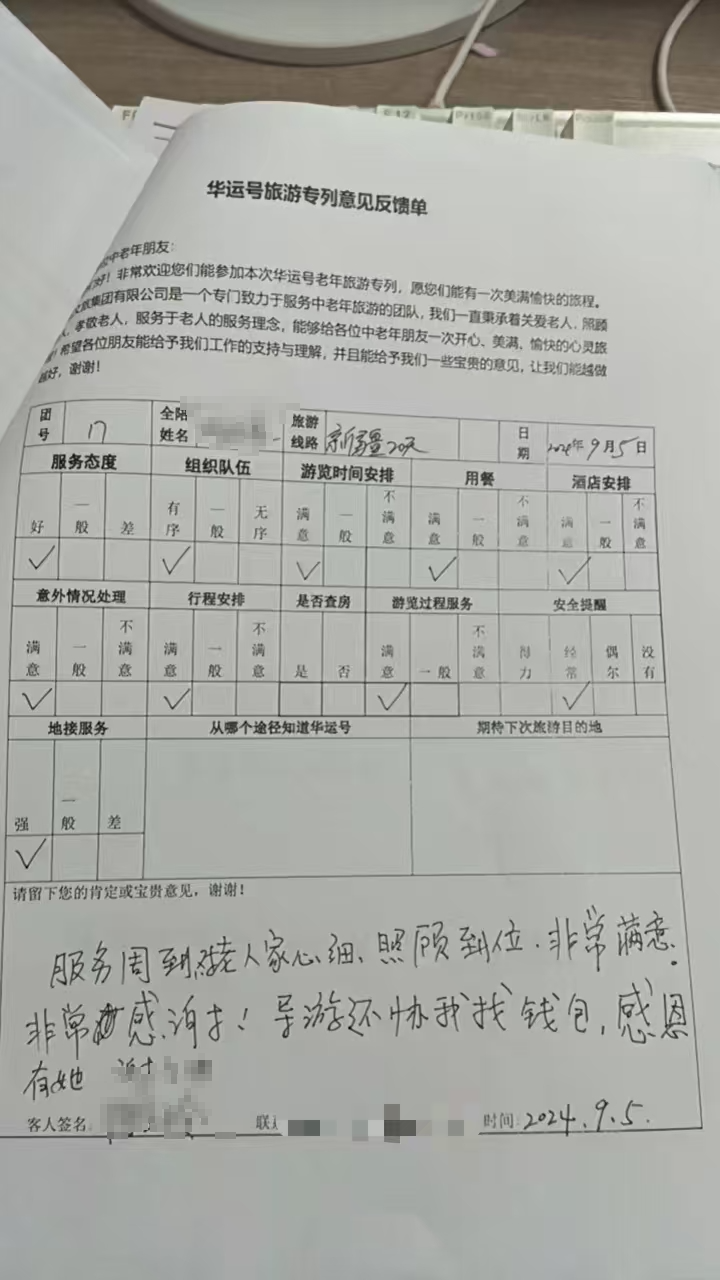 华运号旅游专列意见反馈单
位中老年朋友：
好！非常欢迎您们能参加本次华运号老年旅游专列，愿您们能有一次美满愉快的旅程。
集团有限公司是一个专门致力于服务中老年旅游的团队，我们一直秉承着关爱老人、照顾
、孝敬老人，服务于老人的服务理念，能够给各位中老年朋友一次开心、美满，愉快的心灵旅
！希望各位朋友能给予我们工作的支持与理解，并且能给予我们一些宝贵的意见，让我们能越做
越好，谢谢！
团号 17 全陪姓名 旅游线路 新疆20天 日期 2024年9月5日
服务态度 组织队伍 游览时间安排 用餐 酒店安排
好 一般 差 有序 一般 无序 满意 一般 不满意 满意 一般 不满意 满意 一般 不满意
✓ ✓ ✓ ✓ ✓
意外情况处理 行程安排 是否查房 游览过程服务 安全提醒
满意 一般 不满意 满意 一般 不满意 是 否 满意 一般 不满意 得力 经常 偶尔 没有
✓ ✓ ✓ ✓
地接服务 从哪个途径知道华运号 期待下次旅游目的地
强 一般 差
✓
请留下您的肯定或宝贵意见，谢谢！
服务周到对老人家心细、照顾到位、非常满意、
非常感谢！导游还协我找钱包，感恩
有她
客人签名： 联 时间：2024.9.5.